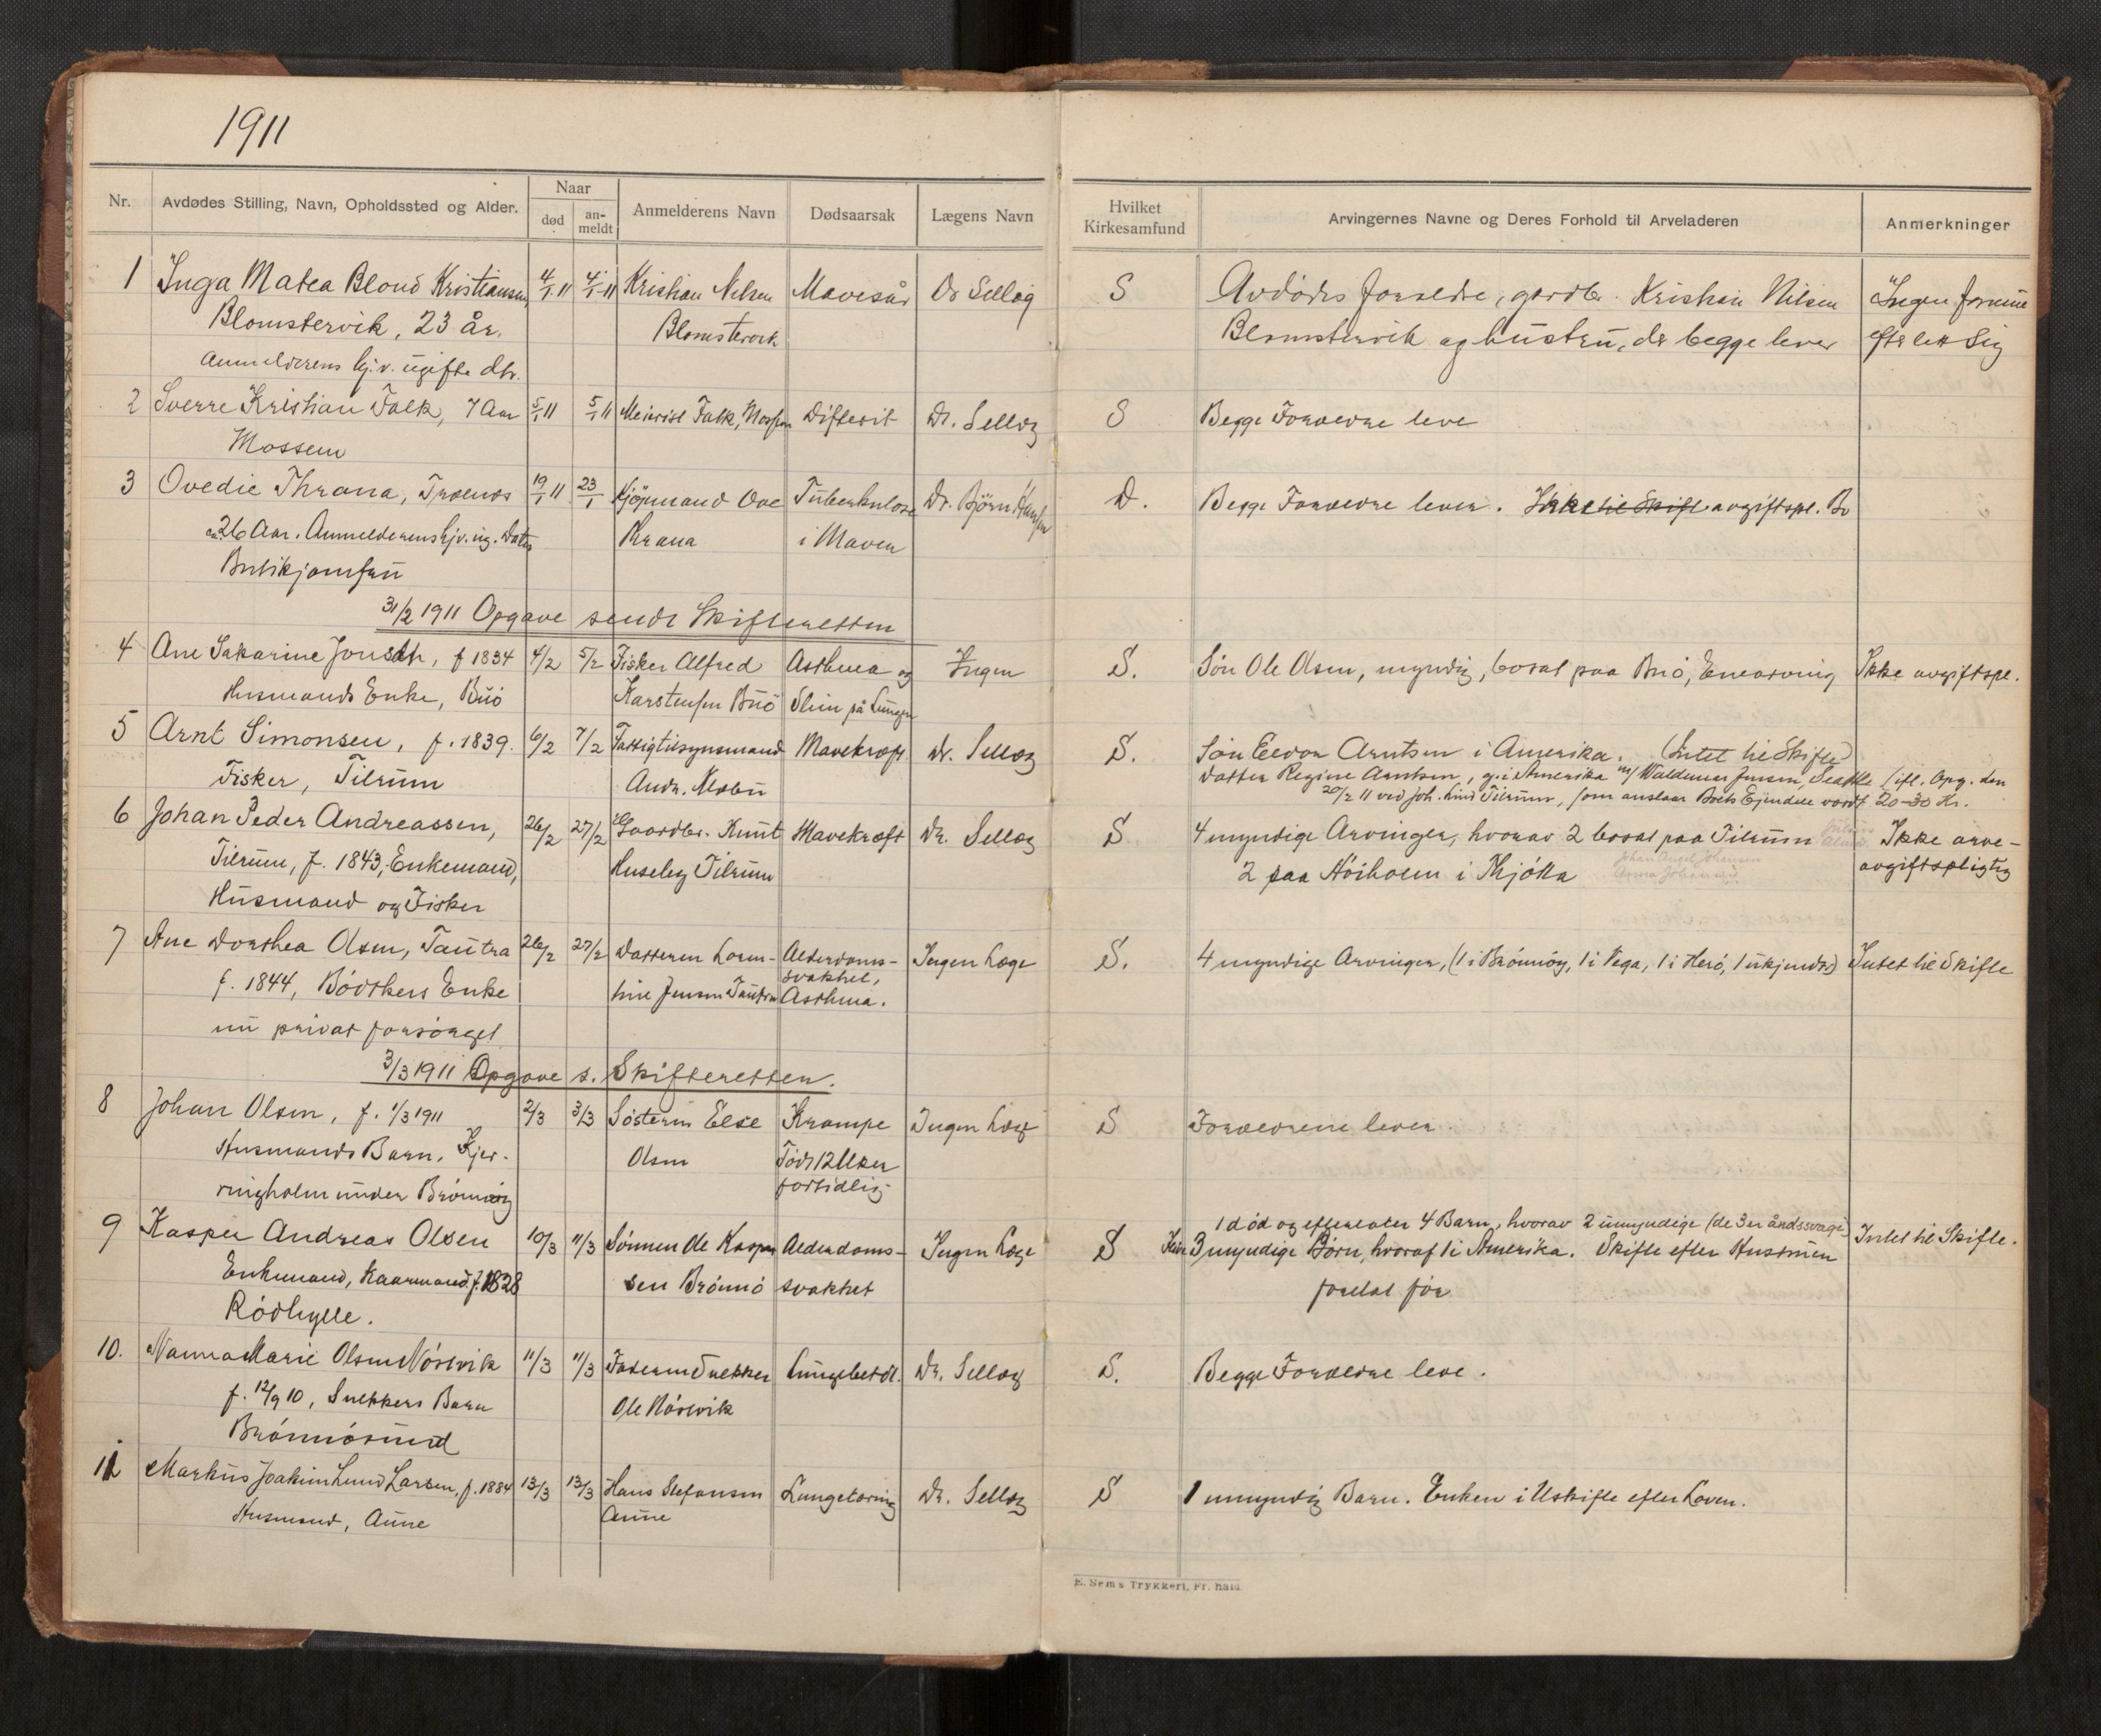 1911
Nr. Avdødes Stilling, Navn, Opholdssted og Alder. Naar død an-meldt Anmelderens Navn Dødsaarsak Lægens Navn Hvilket Kirkesamfund Arvingernes Navne og Deres Forhold til Arveladeren Anmerkninger
1 Inga Matea Blond Kristiansen, 4/1 11 4/1-11 Kristian Nilsen Mavesår Dr Sellæg S Avdødes forældre, gardbr. Kristian Nilsen Ingen formue
Blomstervik, 23 år. Blomstervik Blomstervik og hustru, de begge lever efterlatt sig
Anmelderens hj.v. ugifte dtr.
2 Sverre Kristian Falk, 7 Aar 5/1 11 5/1 11 Falk, Mossem Difterit Dr. Sellæg S Begge Forældre leve
Mossem
3 Ovedie Thrana, Trælnes 19/1 11 23/1 Ove Tuberkulose Dr. Bjørn Hansen D. Begge Forældre lever. Ikke til Skifte avgiftspl. Bo
26 Aar. Anmelderens hj.v. ug. Datter Thrana i Maven
Butikjomfru
31/2 1911 Opgave sendt Skifteretten
4 Ane Sakarine Jonsdtr, f 1834 4/2 5/2 Fisker Alfred Asthma og Ingen S. Søn Ole Olsen, myndig, bosat paa Buø, Enearving Ikke avgiftspl.
Husmands Enke, Buö Karstensen Buö Slim på Lungen
5 Arnt Simonsen, f. 1839. 6/2 7/2 Fattigtilsynsmand Mavekræft Dr. Sellæg S. Søn Edvar Arntsen i Amerika. (Intet til Skifte)
Fisker, Tilrum Andr. Datter Regine Arntsen, g. i Amerika m/ Waldemar Jensen, Seattle (ifl. Opg. den
20/2 11 ved Joh. Lind Tilrum, som anslaar Boets Ejendele værdt 20-30 Kr.
6 Johan Peder Andreassen, 26/2 27/2 Gaardbr. Knut Mavekræft Dr. Sellæg S 4 myndige Arvinger, hvorav 2 bosat paa Tilrum Ikke arve-
Tilrum, f. 1843, Enkemand, Huseby Tilrum 2 paa Høiholm i Thjøtta avgiftspligtig
Husmand og Fisker
7 Ane Dorthea Olsen, Tautra 26/2 27/2 Datteren Alderdoms- Ingen Læge S. 4 myndige Arvinger, (1 i Brønnøy, 1 i Vega, 1 i Herø, 1 ukjendt) Intet til Skifte
f. 1844, Bødkers Enke Jensen Tautra svakhet, Asthma.
nu privat forsørget
3/3 1911 Opgave s. Skifteretten.
8 Johan Olsen, f. 1/3 1911 2/3 3/3 Søsteren Else Krampe Ingen Læge S Forældrene lever.
Husmands Barn, Kjer- Olsen Født 12 Uker
ringholm under Brønnøy fortidlig
9 Kasper Andreas Olsen 10/3 11/3 Sønnen Ole Kasper Alderdoms- Ingen Læge S 1 død og efterlater 4 Barn, hvorav 2 umyndige (de 3 er åndssvage) Intet til Skifte.
Enkemand, Kaarmand, f. 1828 sen Brønnø svakhet 3 myndige Børn, hvoraf 1 i Amerika. Skifte efter Hustruen
Rödhylle. foretat før
10. Nanna Marie Olsen Nösevik 11/3 11/3 Faderen Snekker Lungebetdl. Dr. Sellæg S. Begge Forældre leve.
f. 12/9 10, Snekkers Barn Ole Nösevik
Brønnøsund
11 Markus Joakim Lund Larsen, f. 1884 13/3 13/3 Hans Stefansen Lungetæring Dr. Sellæg S 1 umyndig Barn. Enken i Uskifte efter Loven.
Husmand, Aune Aune
E. Sem's Trykkeri, Fr.hald.